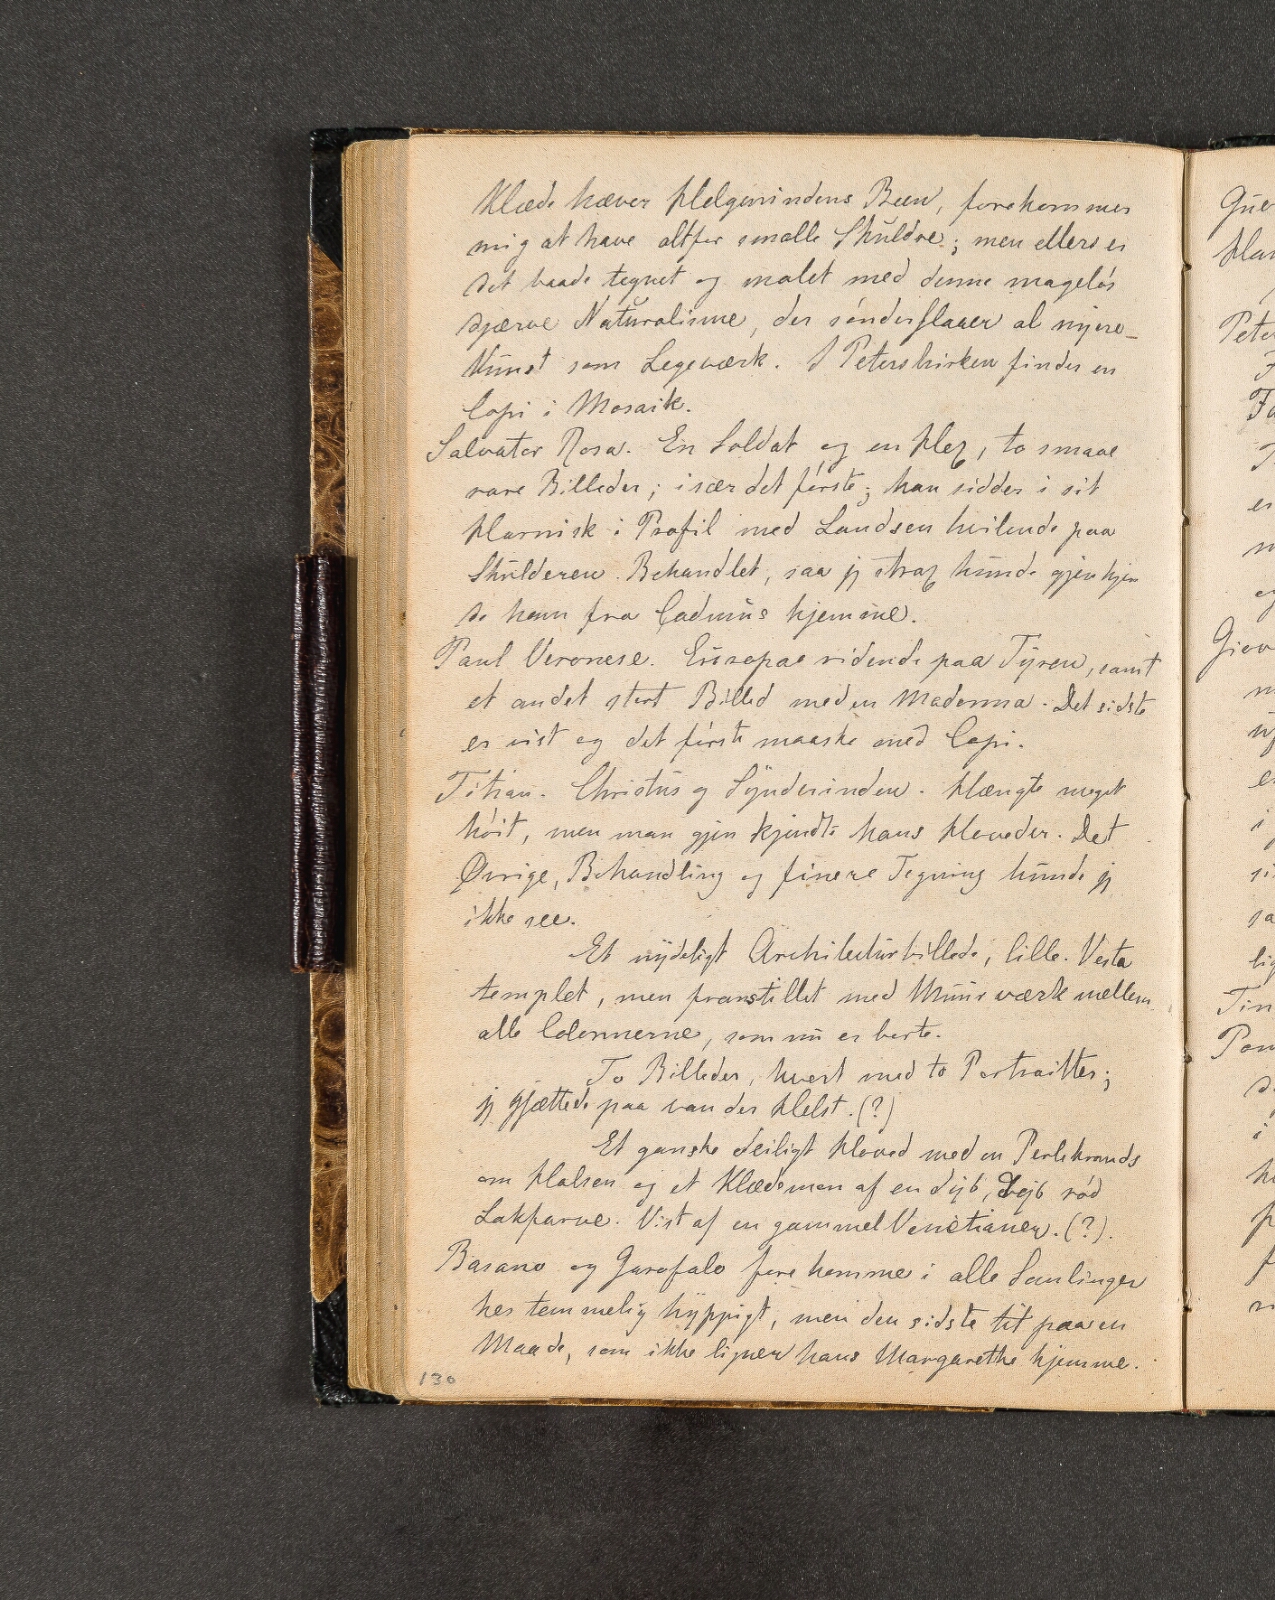 Klæde hæver Helgenindens Been, forekommer
mig at have altfor smalle Skuldre; men ellers er
det baade tegnet og malet med denne mageløs
djærve Naturalisme, der sønderflaaer al nyere
Kunst som Legeværk. I Peterskirken findes en
Copi i Mosaik.
Salvator Rosa. En Soldat og en Hex, to smaae
rare Billeder; især det første; han sidder i sit
Harnisk i Profil med Landsen hvilende paa
Skulderen. Behandlet, saa jeg strax kunde gjenkjen
de ham fra Cadmus hjemme.
Paul Veronese. Europae ridende paa Tyren, samt
et andet stort Billed med en Madonna. Det sidste
er vist og det første maaske med Copi.
Titian. Christus og Synderinden. Hængte meget
høit, men man gjenkjendte hans Hoveder. Det
Øvrige, Behandling og finere Tegning kunde jeg
ikke see.
Et nydeligt Architecturbillede, lille. Vesta
templet, men fremstillet med Muurværk mellem
alle Colonnerne, som nu er borte.
To Billeder, hvert med to Portraitter;
jeg gjættede paa van der Helst. (?)
Et ganske deiligt Hoved med en Perlekrands
om Halsen og et Klædemon af en dyb, dyb rød
Lakfarve. Vist af en gammel Venetianer. (?).
Basano og Garofalo forekomme i alle Samlinger
her temmelig hyppigt, men den sidste tit paa en
Maade, som ikke ligner hans Margarethe hjemme.
130
Gue
Peter
F
er
m
og
Giov
m
er
i
si
sa
lig
Tin
Pom
d
i
h
p
f